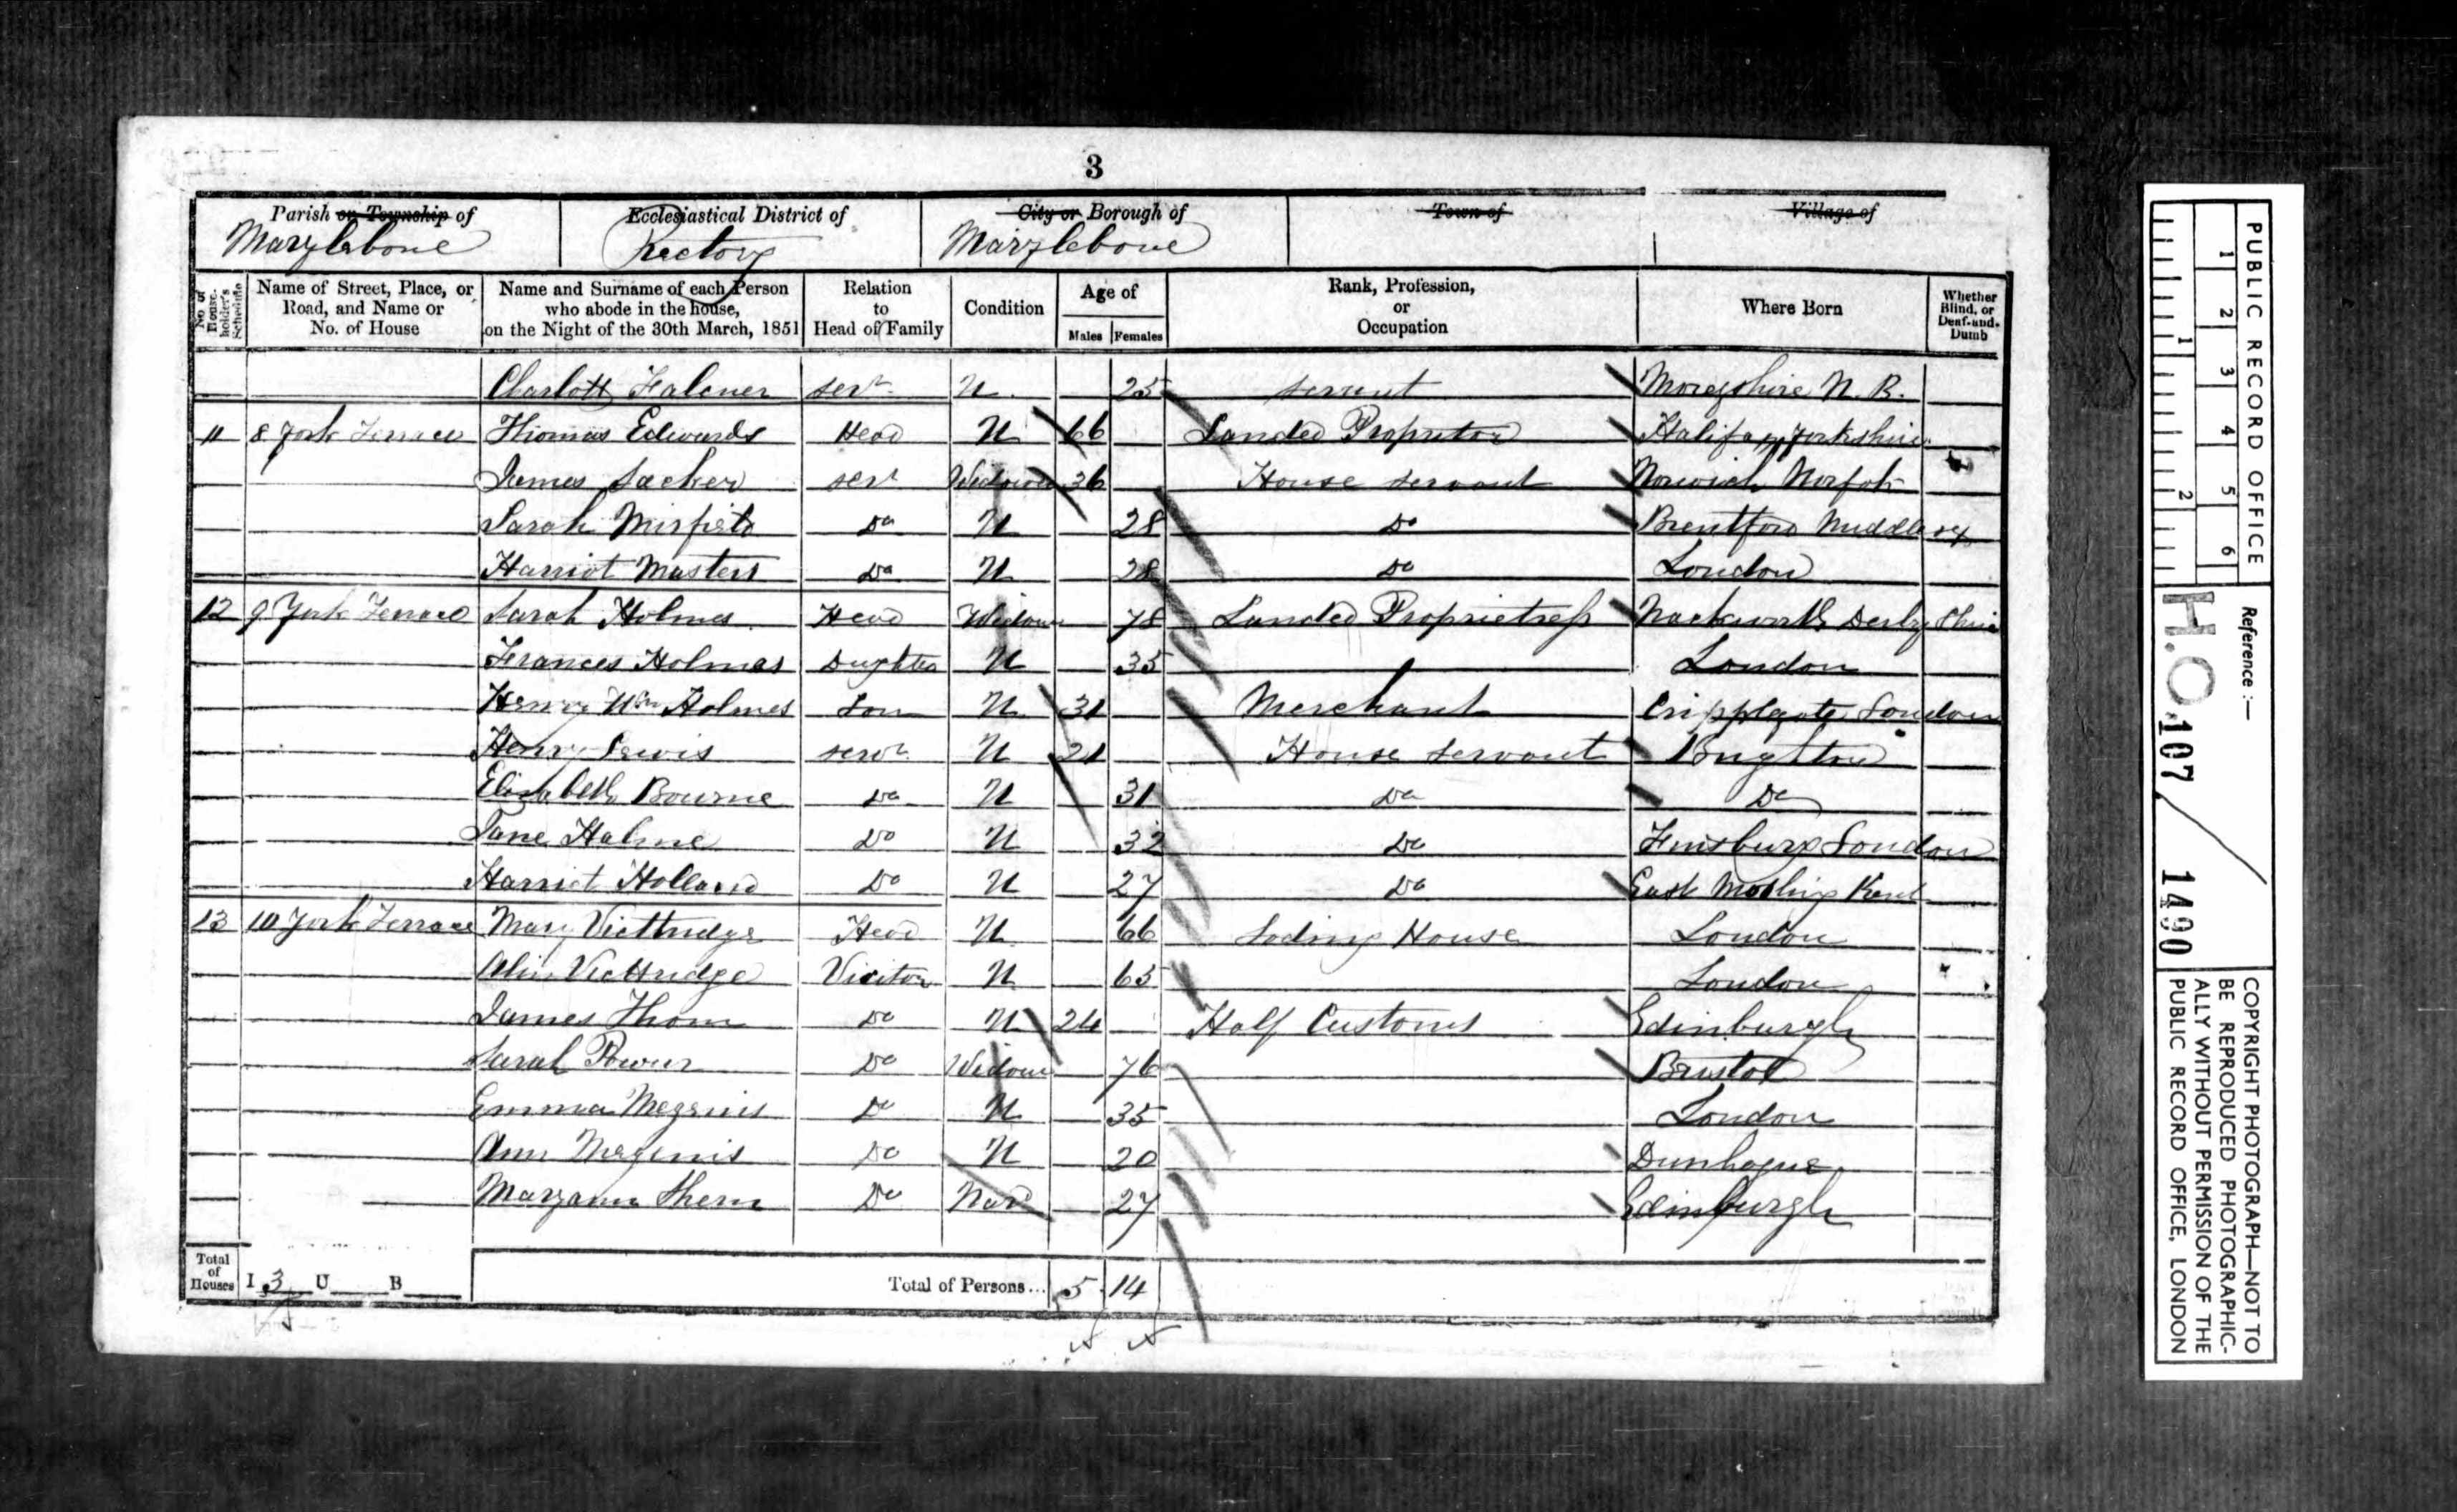 3
Parish or Township of Ecclesiastical District of City or Borough of Town of Village of
Marylebone Rectory Marylebone
No. of House-holder's Schedule
Name of Street, Place, or Road, and Name or No. of House
Name and Surname of each Person who abode in the house, on the Night of the 30th March, 1851
Relation to Head of Family
Condition
Age of
Males Females
Rank, Profession, or Occupation
Where Born
Whether Blind, or Deaf-and-Dumb
Falconer servt U 25 servant N. B.
11 8 York Terrace Thomas Edwards Head U 66 Landed Proprietor Halifax Yorkshire
James servt Widower 36 House servant Norwich Norfolk
Sarah Do U 28 Do Brentford Middlesex
Harriot Masters Do U 28 Do London
12 9 York Terrace Sarah Holmes Head Widow 78 Landed Proprietress Derby Shire
Frances Holmes U 35 London
Henry Wm Holmes Son U 31 Merchant Cripplgate London
Henry Lewis servt U 21 House servant Brighton
Elizabeth Bourne Do U 31 Do Do
Jane Do U 32 Do Finsbury London
Harriot Holland Do U 27 Do East Kent
13 10 York Terrace Mary Head U 66 Loding House London
Visitor U 63 London
James Thom Do U 24 Half Customs Edinburgh
Sarah Power Do Widow 76 Bristol
Emma Do U 35 London
Ann Do U 20
Maryann Do 27 Edinburgh
Total of Houses I 3 U B Total of Persons... 5 14
PUBLIC RECORD OFFICE
1 2 3 4 5 6
1 2
Reference :—
H.O. 107 / 1490
COPYRIGHT PHOTOGRAPH—NOT TO
BE REPRODUCED PHOTOGRAPHIC-
ALLY WITHOUT PERMISSION OF THE
PUBLIC RECORD OFFICE, LONDON